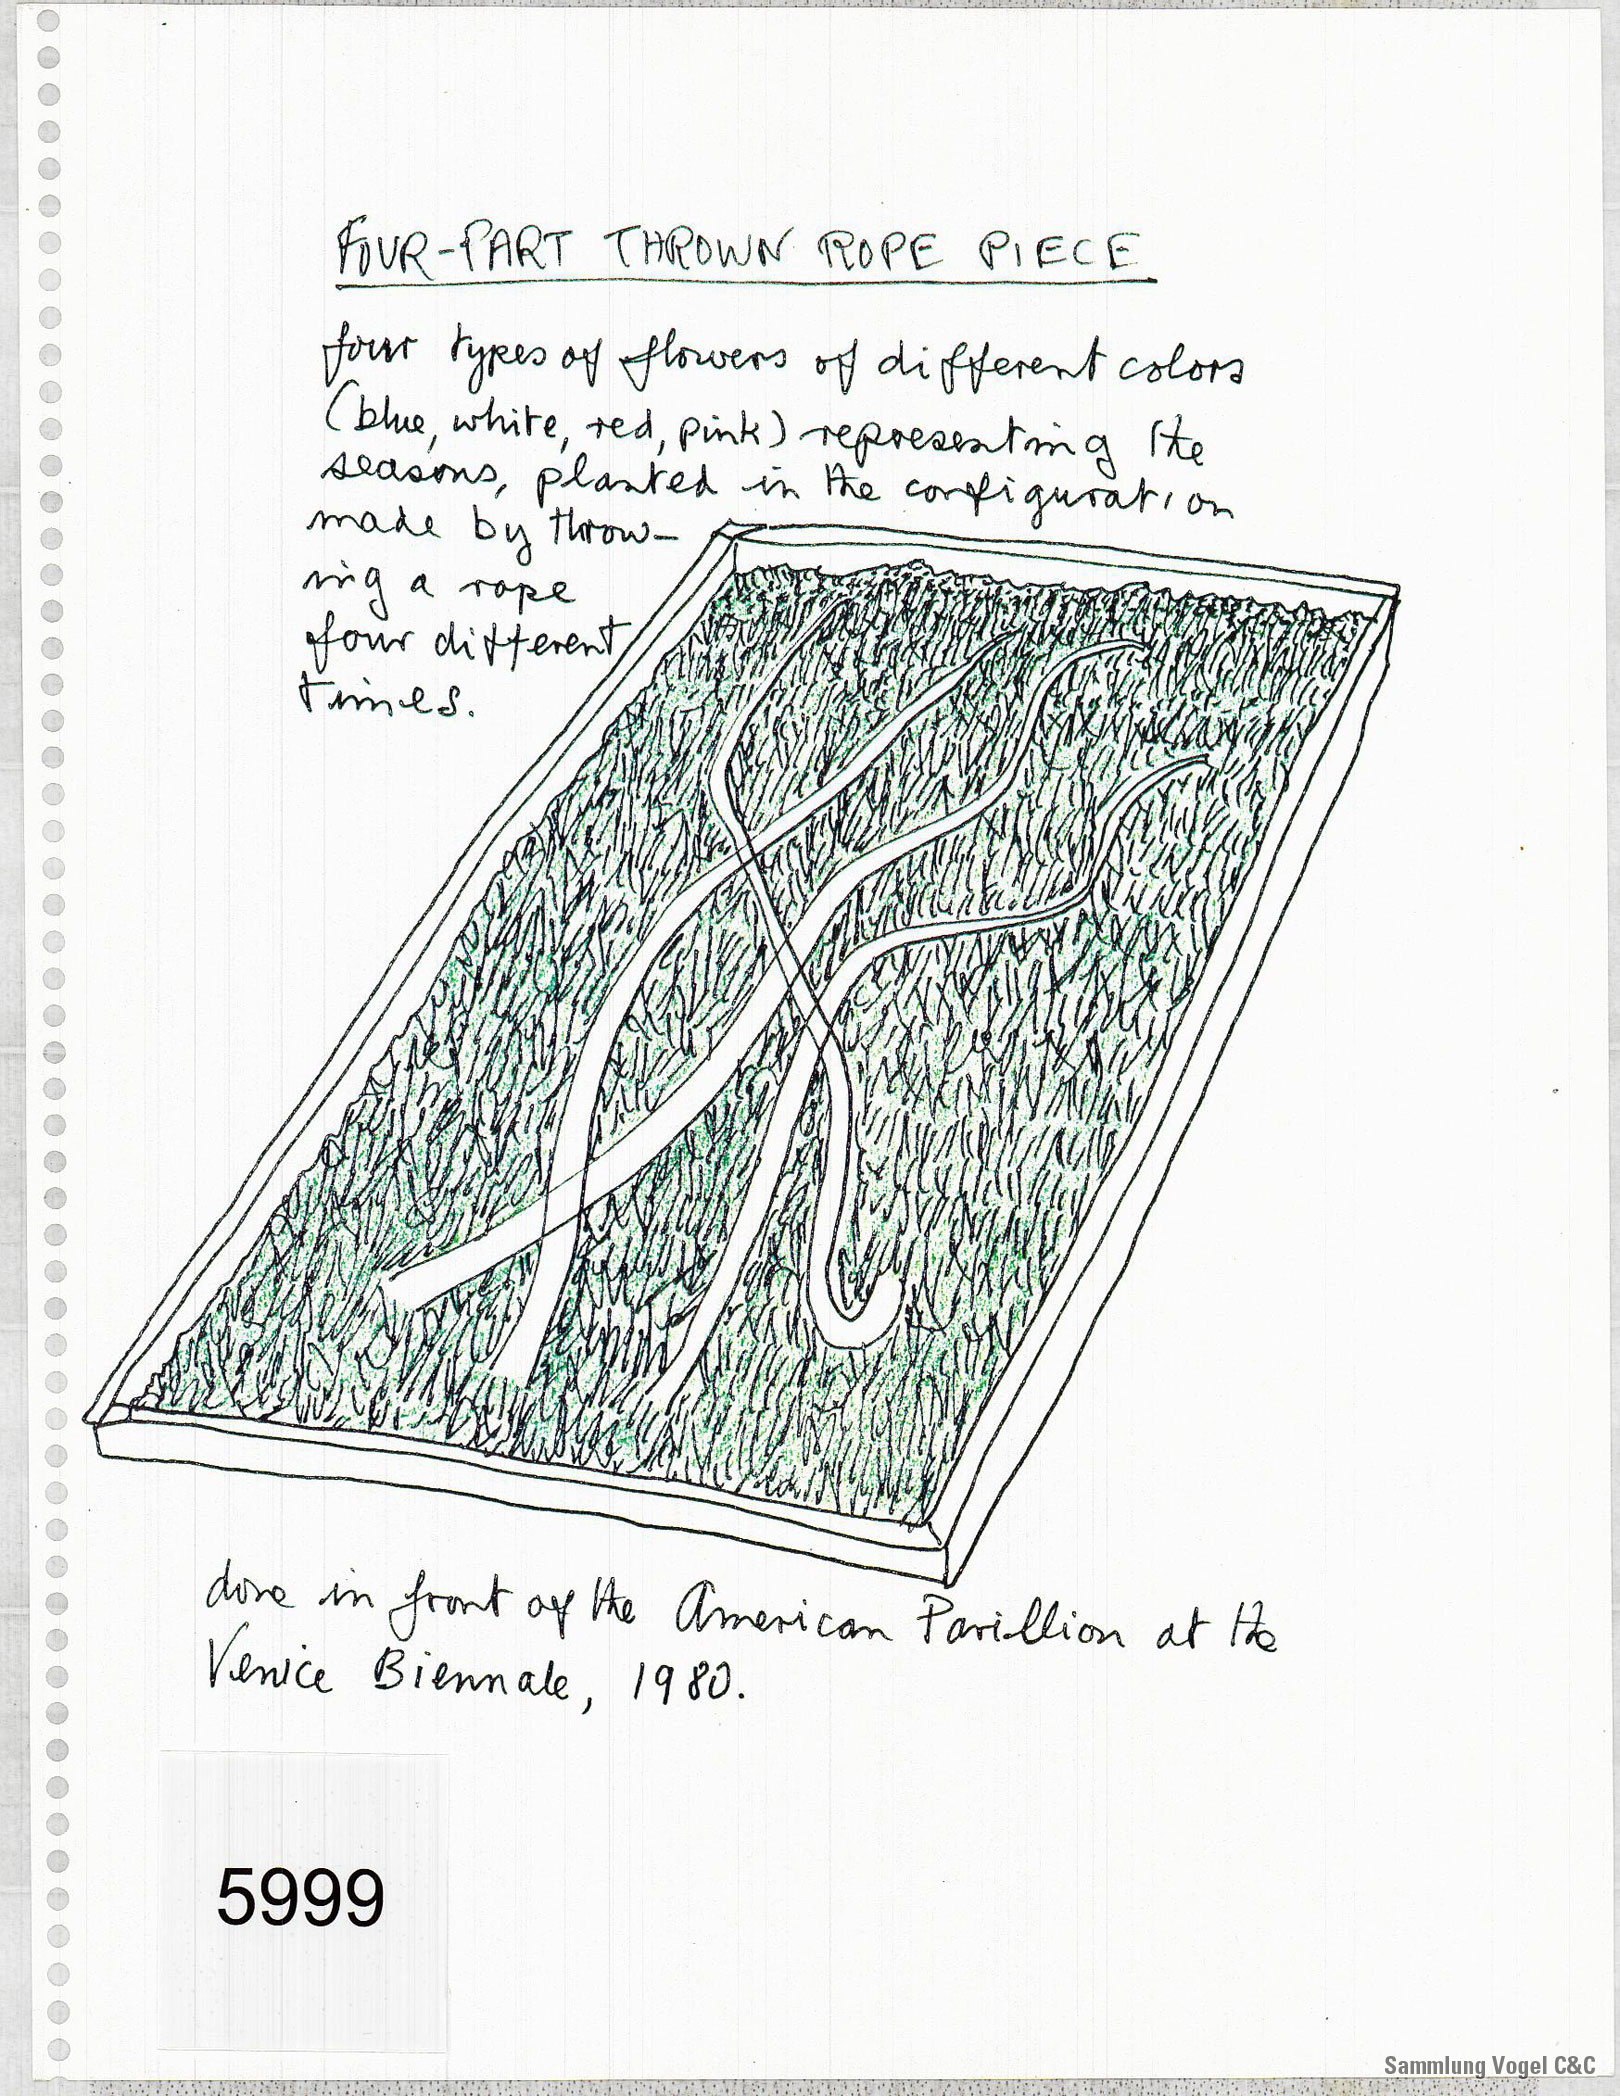 FOUR-PART THROWN ROPE PIECE
four types of flowers of different colors
(blue, white, red, pink) representing the
seasons, planted in the configuration
made by throw-
ing a rope
four different
times.
done in front of the American Pavillion at the
Venice Biennale, 1980.
5999
Sammlung Vogel C&C